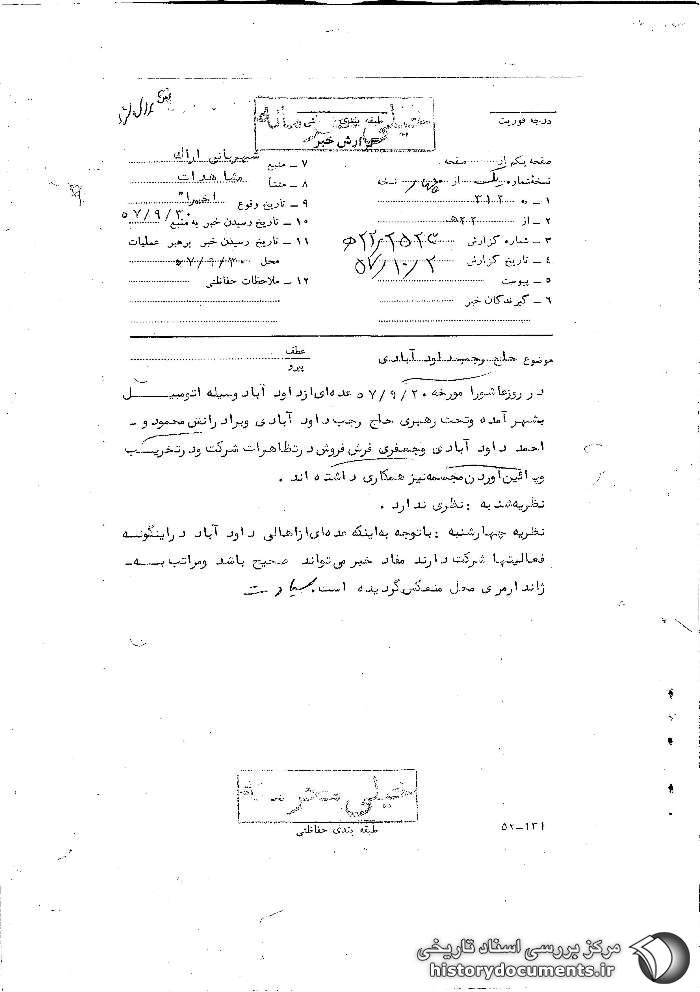 درجه فوریت
طبقه بندی
گزارش خبر
صفحه یکم از صفحه
نسخه شماره یک از چهار نسخه
۱ ـ به ۳۱۲
۲ ـ از ۲۲ ه
۳ ـ شماره گزارش
۴ ـ تاریخ گزارش ۵۷/۱۰/۲
۵ ـ پیوست
۶ ـ گیرندگان خبر
۷ ـ منبع شهربانی اراک
۸ ـ منشأ مشاهدات
۹ ـ تاریخ وقوع اخیرا"
۱۰ ـ تاریخ رسیدن خبر به منبع ۵۷/۹/۲۰
۱۱ ـ تاریخ رسیدن خبر برهبر عملیات
محل ۵۷/۹/۳۰
۱۲ ـ ملاحظات حفاظتی
موضوع حاج رجب داود آبادی
عطف
پیرو
در روز عاشورا مورخه ۵۷/۹/۲۰ عده‌ای از داود آباد وسیله اتومبیل
بشهر آمده وتحت رهبری حاج رجب داود آبادی وبرادرانش محمود و ـ
احمد داود آبادی وجعفری فرش فروش در تظاهرات شرکت ودر تخریب
وپائین آوردن مجسمه نیز همکاری داشته اند .
نظریه شنبه : نظری ندارد .
نظریه چهارشنبه : باتوجه به اینکه عده‌ای از اهالی داود آباد در اینگونه
فعالیتها شرکت دارند مفاد خبر می‌تواند صحیح باشد ومراتب بـه ـ
ژاندارمری محل منعکس گردیده است.
خیلی محرمانه
طبقه بندی حفاظتی
۵۲-۱۳۱
مرکز بررسی اسناد تاریخی
historydocuments.ir